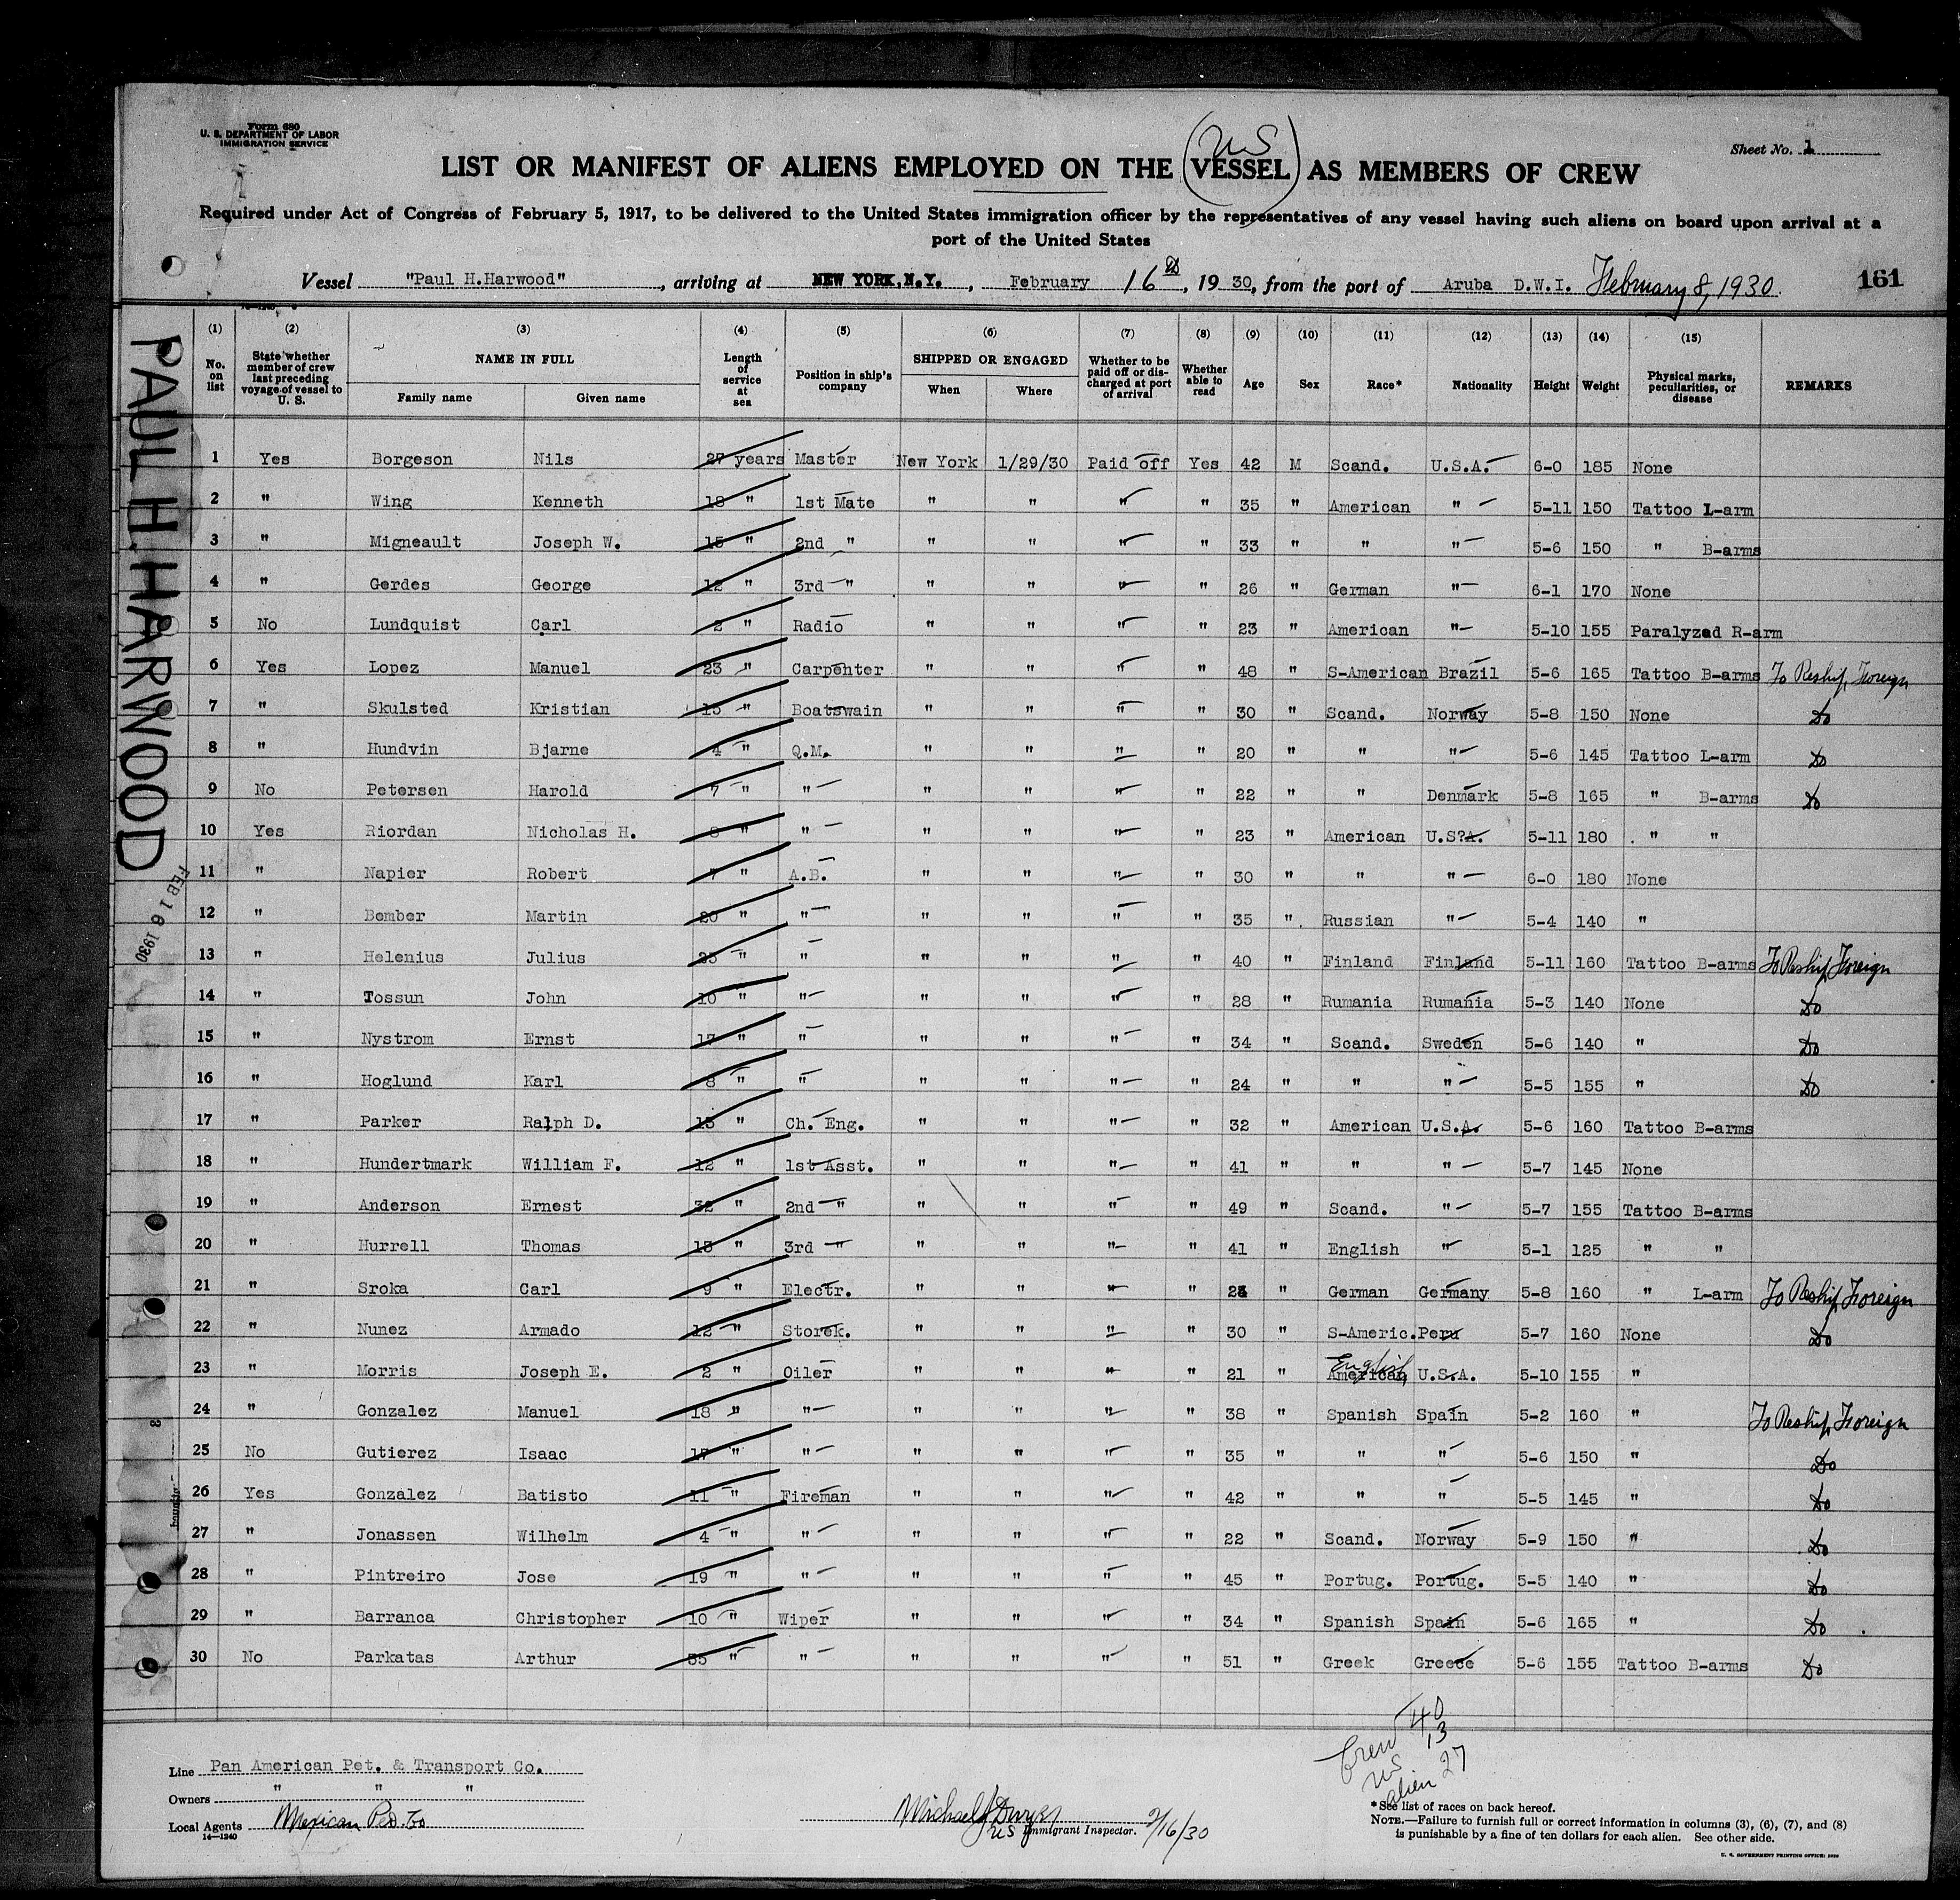 Form 680
U. S. DEPARTMENT OF LABOR
IMMIGRATION SERVICE
Sheet No. 1
US
LIST OR MANIFEST OF ALIENS EMPLOYED ON THE (VESSEL) AS MEMBERS OF CREW
Required under Act of Congress of February 5, 1917, to be delivered to the United States immigration officer by the representatives of any vessel having such aliens on board upon arrival at a
port of the United States
Vessel "Paul H.Harwood", arriving at NEW YORK, N.Y., February 16th, 1930, from the port of Aruba D.W.I. February 8, 1930.
161
PAUL H. HARWOOD
FEB 16 1930
(1) (2) (3) (4) (5) (6) (7) (8) (9) (10) (11) (12) (13) (14) (15)
No. on list | State whether member of crew last preceding voyage of vessel to U. S. | NAME IN FULL Family name Given name | Length of service at sea | Position in ship's company | SHIPPED OR ENGAGED When Where | Whether to be paid off or discharged at port of arrival | Whether able to read | Age | Sex | Race* | Nationality | Height | Weight | Physical marks, peculiarities, or disease | REMARKS
1 Yes Borgeson Nils 27 years Master New York 1/29/30 Paid off Yes 42 M Scand. U.S.A. 6-0 185 None
2 " Wing Kenneth 18 " 1st Mate " " " " 35 " American " 5-11 150 Tattoo L-arm
3 " Migneault Joseph W. 15 " 2nd " " " " " 33 " " " 5-6 150 " B-arms
4 " Gerdes George 12 " 3rd " " " " " 26 " German " 6-1 170 None
5 No Lundquist Carl 2 " Radio " " " " 23 " American " 5-10 155 Paralyzed R-arm
6 Yes Lopez Manuel 23 " Carpenter " " " " 48 " S-American Brazil 5-6 165 Tattoo B-arms To Reship Foreign
7 " Skulsted Kristian 15 " Boatswain " " " " 30 " Scand. Norway 5-8 150 None Do
8 " Hundvin Bjarne 4 " Q.M. " " " " 20 " " " 5-6 145 Tattoo L-arm Do
9 No Petersen Harold 7 " " " " " " 22 " " Denmark 5-8 165 " B-arms Do
10 Yes Riordan Nicholas H. 8 " " " " " " 23 " American U.S?A. 5-11 180 . " "
11 " Napier Robert 7 " A.B. " " " " 30 " " " 6-0 180 None
12 " Bember Martin 20 " " " " " " 35 " Russian " 5-4 140 "
13 " Helenius Julius 25 " " " " " " 40 " Finland Finland 5-11 160 Tattoo B-arms To Reship Foreign
14 " Tossun John 10 " " " " " " 28 " Rumania Rumania 5-3 140 None Do
15 " Nystrom Ernst 17 " " " " " " 34 " Scand. Sweden 5-6 140 " Do
16 " Hoglund Karl 8 " " " " " " 24 " " " 5-5 155 " Do
17 " Parker Ralph D. 15 " Ch. Eng. " " " " 32 " American U.S.A. 5-6 160 Tattoo B-arms
18 " Hundertmark William F. 12 " 1st Asst. " " " " 41 " " " 5-7 145 None
19 " Anderson Ernest 32 " 2nd " " " " " 49 " Scand. " 5-7 155 Tattoo B-arms
20 " Hurrell Thomas 13 " 3rd " " " " " 41 " English " 5-1 125 " "
21 " Sroka Carl 9 " Electr. " " " " " German Germany 5-8 160 " L-arm To Reship Foreign
22 " Nunez Armado 12 " Storek. " " " " 30 " S-Americ. Peru 5-7 160 None Do
23 " Morris Joseph E. 2 " Oiler " " " " 21 " English American U.S.A. 5-10 155 "
24 " Gonzalez Manuel 18 " " " " " " 38 " Spanish Spain 5-2 160 " To Reship Foreign
25 No Gutierez Isaac 17 " " " " " " 35 " " " 5-6 150 " Do
26 Yes Gonzalez Batisto 11 " Fireman " " " " 42 " " " 5-5 145 " Do
27 " Jonassen Wilhelm 4 " " " " " " 22 " Scand. Norway 5-9 150 " Do
28 " Pintreiro Jose 19 " " " " " " 45 " Portug. Portug. 5-5 140 " Do
29 " Barranca Christopher 10 " Wiper " " " " 34 " Spanish Spain 5-6 165 " Do
30 No Parkatas Arthur 35 " " " " " " 51 " Greek Greece 5-6 155 Tattoo B-arms Do
Crew 40
US 13
alien 27
Line Pan American Pet. & Transport Co.
Owners " " "
Local Agents Mexican Pet. Co
14-1240
Michael J Dwyer
US Immigrant Inspector. 2/16/30
*See list of races on back hereof.
NOTE.—Failure to furnish full or correct information in columns (3), (6), (7), and (8)
is punishable by a fine of ten dollars for each alien. See other side.
U. S. GOVERNMENT PRINTING OFFICE: